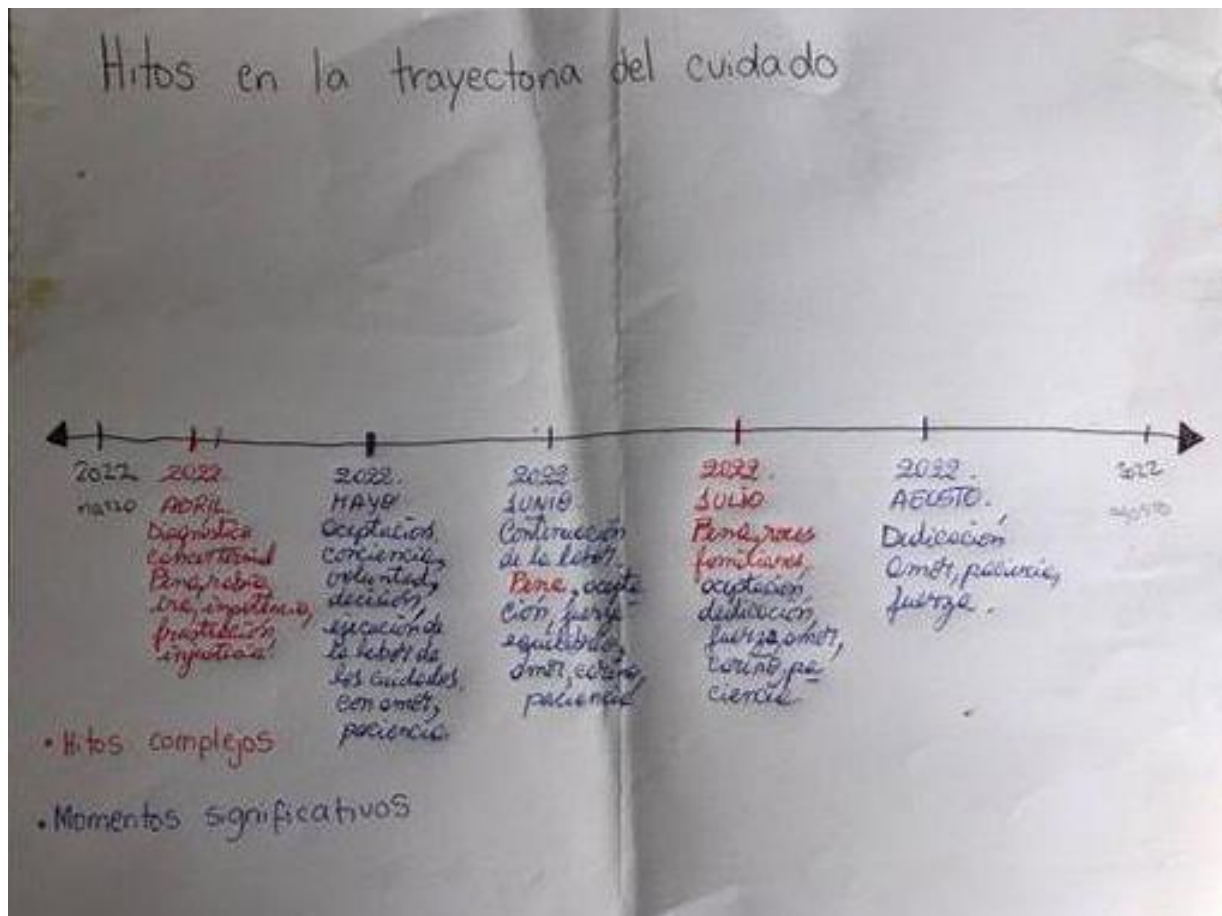 Hitos en la trayectoria del cuidado
2022
marzo
2022
ABRIL
Diagnóstico
Pena, rabia,
ira, impotencia,
frustración,
injusticia.
2022.
MAYO
Aceptación,
conciencia,
voluntad,
decisión,
ejecución de
la labor de
los cuidados,
con amor,
paciencia.
2022.
JUNIO
Continuación
de la labor.
Pena, acepta
ción, fuerza
equilibrio,
amor, cariño,
paciencia
2022.
JULIO
Pena, roces
familiares,
aceptación,
dedicación,
fuerza, amor,
cariño, pa
ciencia.
2022.
AGOSTO.
Dedicación
amor, paciencia,
fuerza.
2022
agosto
• Hitos complejos
• Momentos significativos